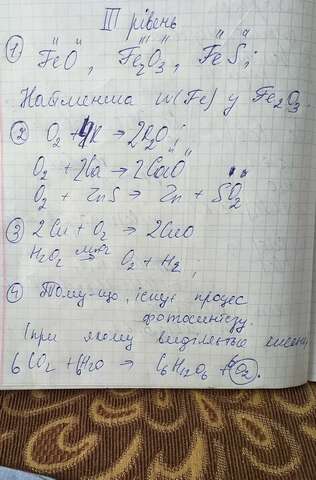 III рівень
① FeO, Fe₂O₃, FeS;
Найменша w(Fe) у Fe₂O₃.
② O₂ + 4K → 2K₂O;
O₂ + 2Ca → 2CaO
O₂ + ZnS → Zn + SO₂
③ 2Cu + O₂ → 2CuO
H₂O₂ → O₂ + H₂,
④ Тому-що, існує процес
фотосинтезу.
(при якому виділяється кисень
6CO₂ + 6H₂O → C₆H₁₂O₆ + 6O₂.